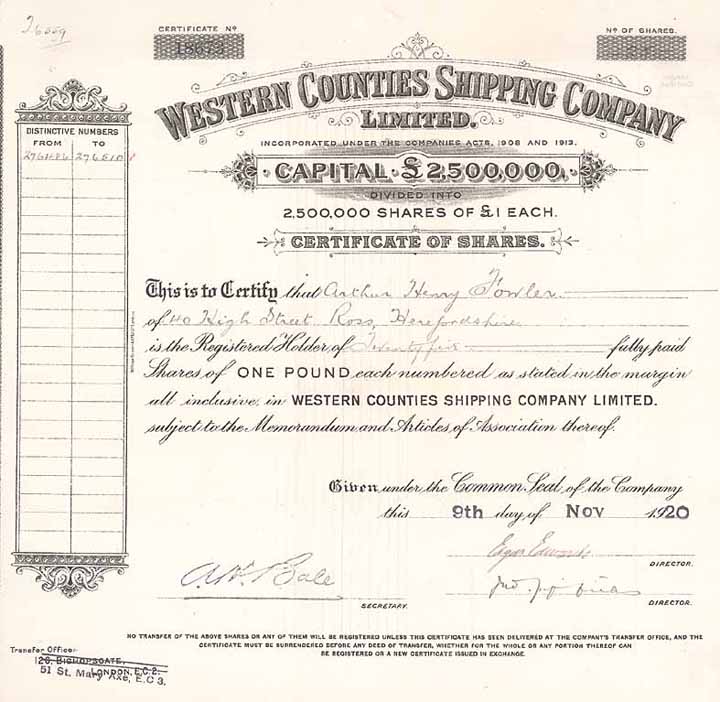 26559
CERTIFICATE Nº
Nº OF SHARES.
WESTERN COUNTIES SHIPPING COMPANY
LIMITED.
INCORPORATED UNDER THE COMPANIES ACTS, 1908 AND 1913.
CAPITAL £2,500,000,
DIVIDED INTO
2,500,000 SHARES OF £1 EACH.
CERTIFICATE OF SHARES.
DISTINCTIVE NUMBERS
FROM TO
276486 276510
This is to Certify that Arthur Henry Fowler
of 40 High Street Ross, Herefordshire
is the Registered Holder of Twenty five fully paid
Shares of ONE POUND each numbered as stated in the margin
all inclusive, in WESTERN COUNTIES SHIPPING COMPANY LIMITED.
subject to the Memorandum and Articles of Association thereof.
Given under the Common Seal of the Company
this 9th day of Nov 1920
Edgar Edwards
DIRECTOR.
DIRECTOR.
SECRETARY.
NO TRANSFER OF THE ABOVE SHARES OR ANY OF THEM WILL BE REGISTERED UNLESS THIS CERTIFICATE HAS BEEN DELIVERED AT THE COMPANY'S TRANSFER OFFICE, AND THE
CERTIFICATE MUST BE SURRENDERED BEFORE ANY DEED OF TRANSFER, WHETHER FOR THE WHOLE OR ANY PORTION THEREOF CAN
BE REGISTERED OR A NEW CERTIFICATE ISSUED IN EXCHANGE.
Transfer Office:
126, BISHOPSGATE,
LONDON, E.C.2.
51 St. Mary Axe, E.C 3.